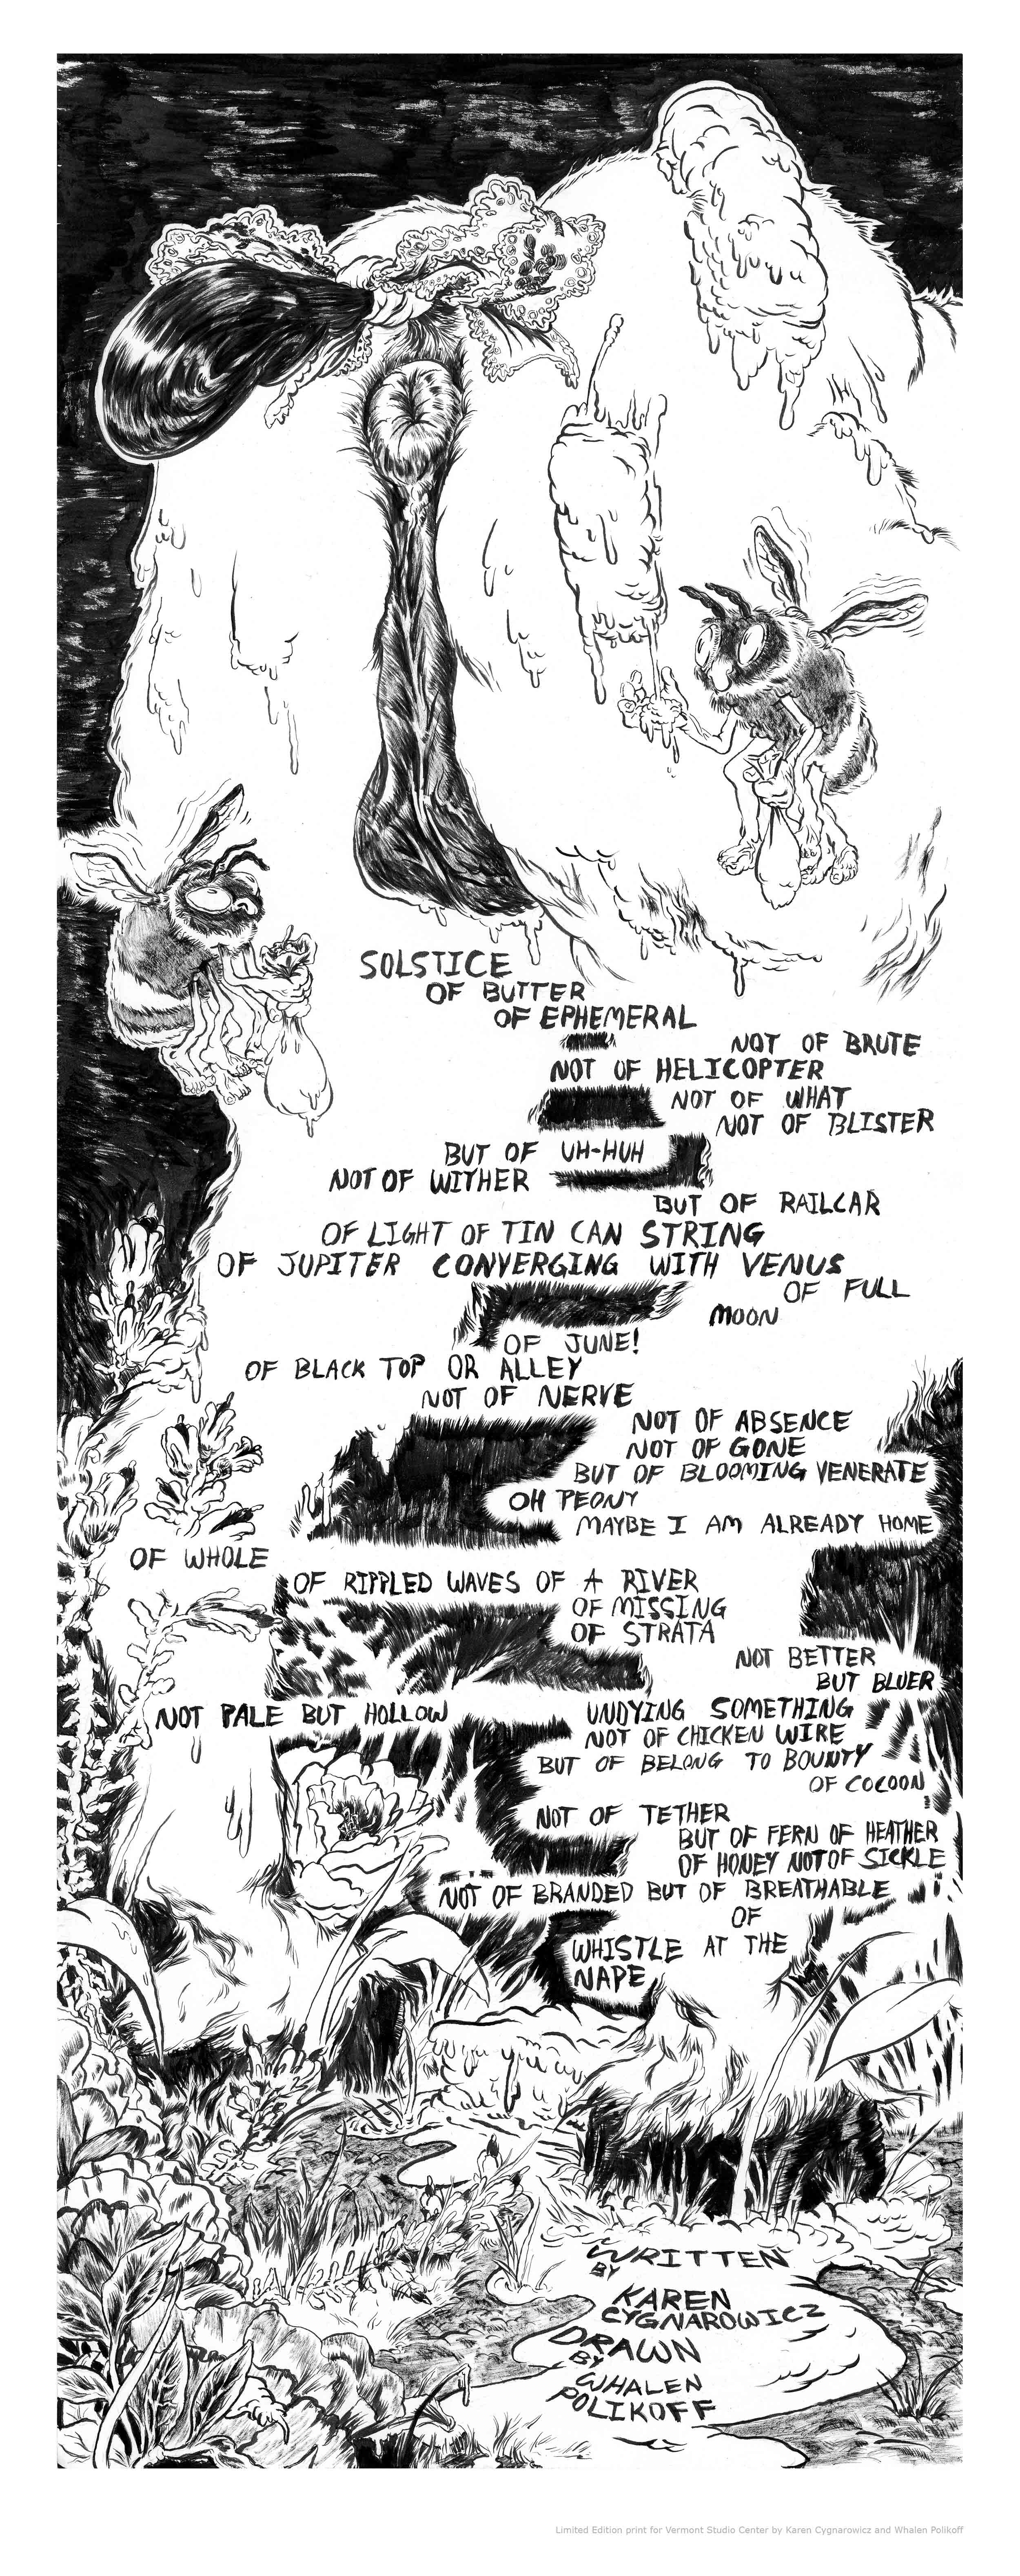 SOLSTICE
OF BUTTER
OF EPHEMERAL
NOT OF BRUTE
NOT OF HELICOPTER
NOT OF WHAT
NOT OF BLISTER
BUT OF UH-HUH
NOT OF WITHER
BUT OF RAILCAR
OF LIGHT OF TIN CAN STRING
OF JUPITER CONVERGING WITH VENUS
OF FULL
MOON
OF JUNE!
OF BLACK TOP OR ALLEY
NOT OF NERVE
NOT OF ABSENCE
NOT OF GONE
BUT OF BLOOMING VENERATE
OH PEONY
MAYBE I AM ALREADY HOME
OF WHOLE
OF RIPPLED WAVES OF A RIVER
OF MISSING
OF STRATA
NOT BETTER
BUT BLUER
NOT PALE BUT HOLLOW
UNDYING SOMETHING
NOT OF CHICKEN WIRE
BUT OF BELONG TO BOUNTY
OF COCOON
NOT OF TETHER
BUT OF FERN OF HEATHER
OF HONEY NOT OF SICKLE
NOT OF BRANDED BUT OF BREATHABLE
OF
WHISTLE AT THE
NAPE
WRITTEN
BY
KAREN
CYGNAROWICZ
DRAWN
BY
WHALEN
POLIKOFF
Limited Edition print for Vermont Studio Center by Karen Cygnarowicz and Whalen Polikoff